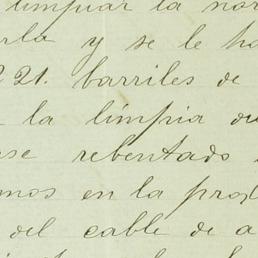 limpiar la nor
rla y se le ha
221. barriles de
la limpia du
se rebentado
mos en la prof
del cable de a